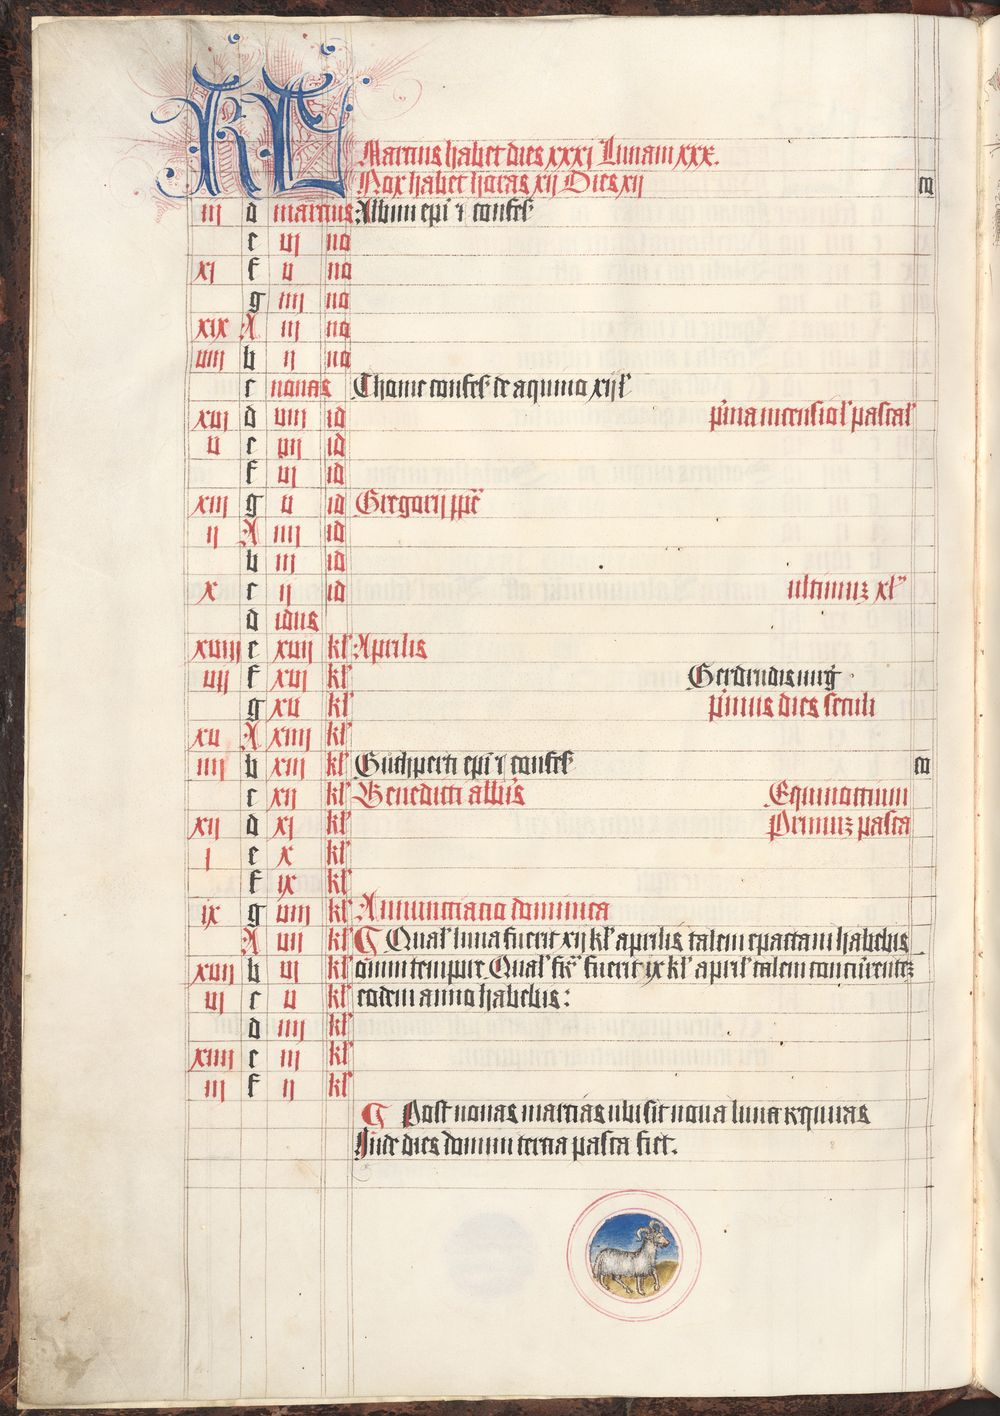 KL Martius habet dies xxxi Lunam xxx.
Nox habet horas xij Dies xij
iij d martius Albini epi ⁊ confes
e vj no
xj f v no
g iiij no
xix A iij no
viij b ij no
c nonas Thome confes de aquino xij ł
xvj d viij id pima incensio ł pascał
v e vij id
f vj id
xiij g v id Gregorij ppe
ij A iiij id
b iij id
x c ij id ultimuz xl
d idus
xviij e xvij kł Aprilis
vij f xvj kł Gerdrudis virg
g xv kł pimus dies seculi
xv A xiiij kł
iiij b xiij kł Guthperti epi ⁊ confes
c xij kł Benedicti abbis Equinoctium
xij d xj kł Primuz pasca
j e x kł
f ix kł
ix g viij kł Annunctiacio dominica
A vij kł Qual luna fuerit xij kł aprilis talem epactam habebis
xvij b vj kł omni tempore Qual fuerit ix kł april talem concurrentez
vj c v kł eodem anno habebis:
d iiij kł
xiiij e iij kł
iij f ij kł
Post nonas marcias ubi sit noua luna requiras
Inde dies domini tercia pasca fiet.